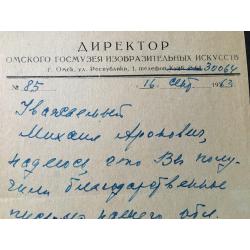 ДИРЕКТОР
ОМСКОГО ГОСМУЗЕЯ ИЗОБРАЗИТЕЛЬНЫХ ИСКУССТВ
г. Омск, ул. Республики, 1, телефон 30064
№ 85 16 сент. 1963
Уважаемый
Михаил Аронович,
надеюсь, что Вы полу-
чили благодарственные
письма нашего обл.